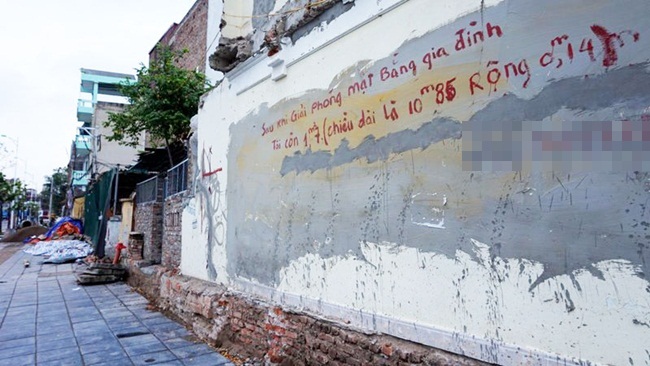 Sau khi Giải phóng mặt Bằng gia đình
Tôi còn 1,m7. (chiều dài là 10m85 Rộng 0,m14)